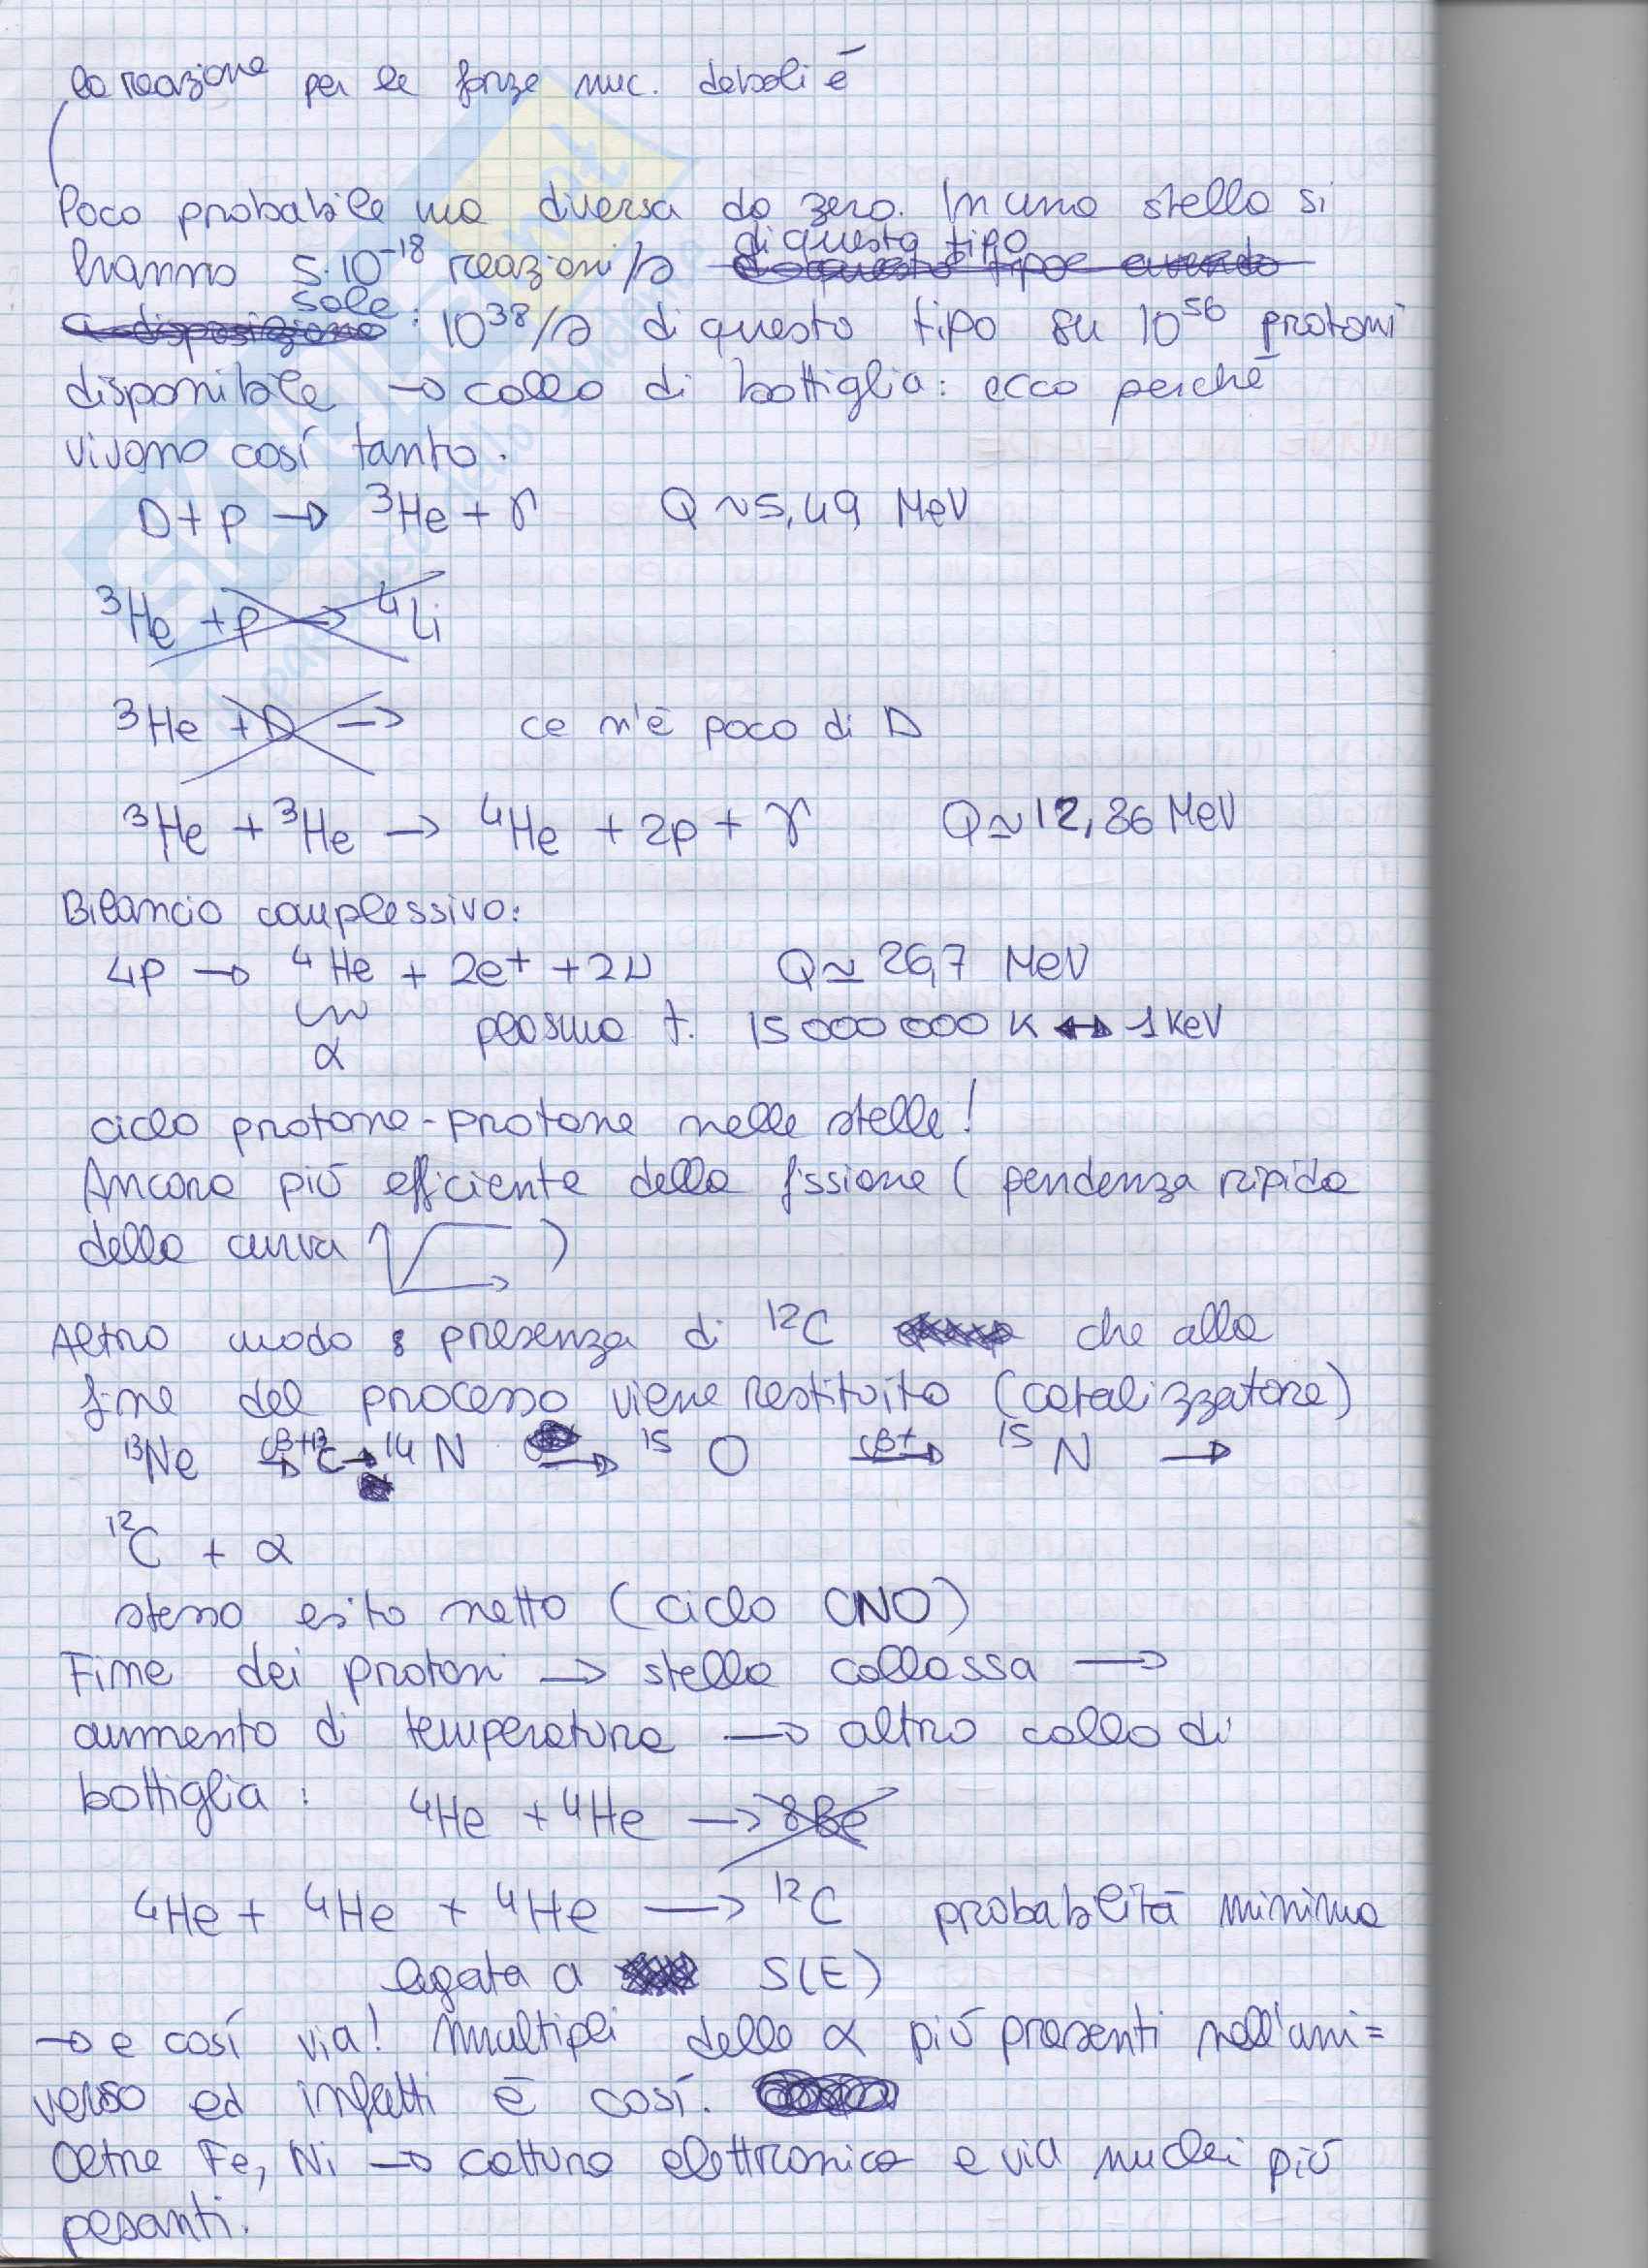 la reazione per le forze nuc. deboli è
Poco probabile ma diversa da zero. In una stella si
hanno 5·10⁻¹⁸ reazioni/s di questo tipo
sole: 10³⁸/s di questo tipo su 10⁵⁶ protoni
disponibile → collo di bottiglia: ecco perché
vivono così tanto.
D+p → ³He + γ Q ~ 5,49 MeV
³He + p → ⁴Li
³He + D → ce n'è poco di D
³He + ³He → ⁴He + 2p + γ Q ≃ 12,86 MeV
Bilancio complessivo:
4p → ⁴He + 2e⁺ + 2ν Q ≃ 26,7 MeV
α plasma t. 15 000 000 K ↔ 1 KeV
ciclo protone-protone nelle stelle!
Ancora più efficiente della fissione (pendenza ripida
della curva )
Altro modo: presenza di ¹²C che alla
fine del processo viene restituito (catalizzatore)
¹³Ne β+ → ¹³C → ¹⁴N → ¹⁵O β+ → ¹⁵N →
¹²C + α
stesso esito netto (ciclo CNO)
Fine dei protoni → stella collassa →
aumento di temperatura → altro collo di
bottiglia: ⁴He + ⁴He → ⁸Be
⁴He + ⁴He + ⁴He → ¹²C probabilità minima
legata a S(E)
→ e così via! Multipli delle α più presenti nell'uni=
verso ed infatti è così.
Oltre Fe, Ni → cattura elettronica e via nuclei più
pesanti.